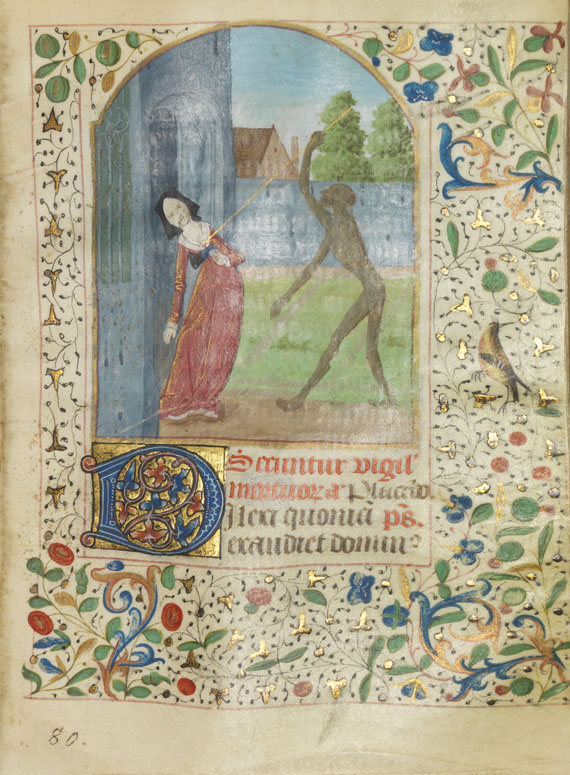 Secuntur vigil'
mortuor. a' Placebo.
Dilexi quoniā p̄s.
exaudiet domin9
80.